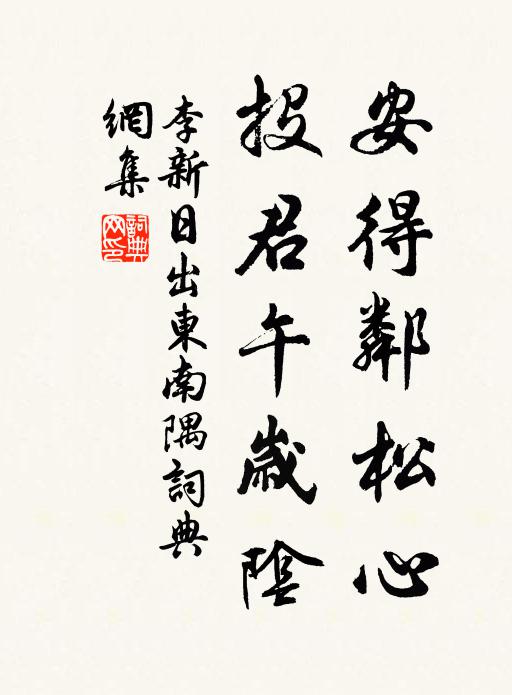 安得鄰松心
投君午歲陰
李新日出東南隅詞典
網集
詞典
网印